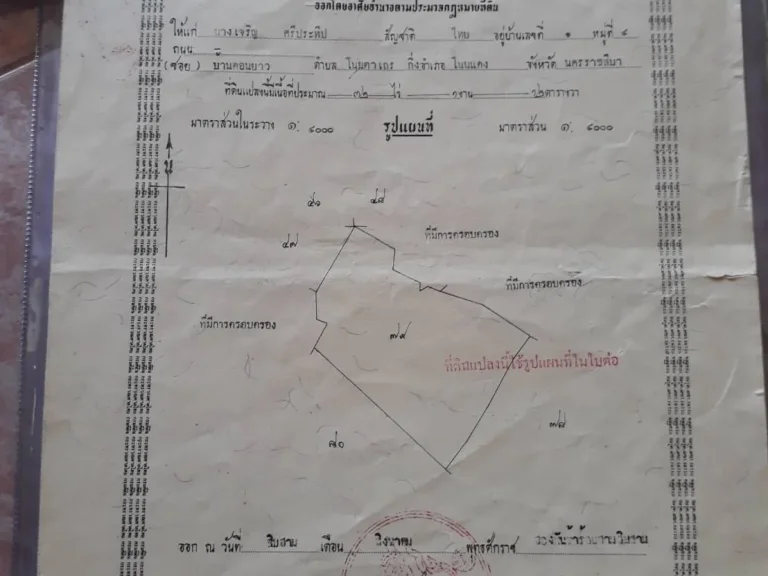 ออกโดยอาศัยอำนาจตามประมวลกฎหมายที่ดิน
ให้แก่ นางเจริญ ศรีประทีป สัญชาติ ไทย อยู่บ้านเลขที่ ๑ หมู่ที่ ๘
ถนน
(ซอย) บ้านดอนยาว ตำบล โนนตาเถร กิ่งอำเภอ โนนแดง จังหวัด นครราชสีมา
ที่ดินแปลงนี้มีเนื้อที่ประมาณ ๓๒ ไร่ งาน ๖๒ ตารางวา
มาตราส่วนในระวาง ๑: ๔๐๐๐ รูปแผนที่ มาตราส่วน ๑: ๔๐๐๐
น
๕๑ ๔๘
๔๗ ที่มีการครอบครอง
ที่มีการครอบครอง
ที่มีการครอบครอง ๗๙
ที่ดินแปลงนี้ใช้รูปแผนที่ในใบต่อ
๗๘
๘๐
ออก ณ วันที่ สิบสาม เดือน สิงหาคม พุทธศักราช สองพันห้าร้อย